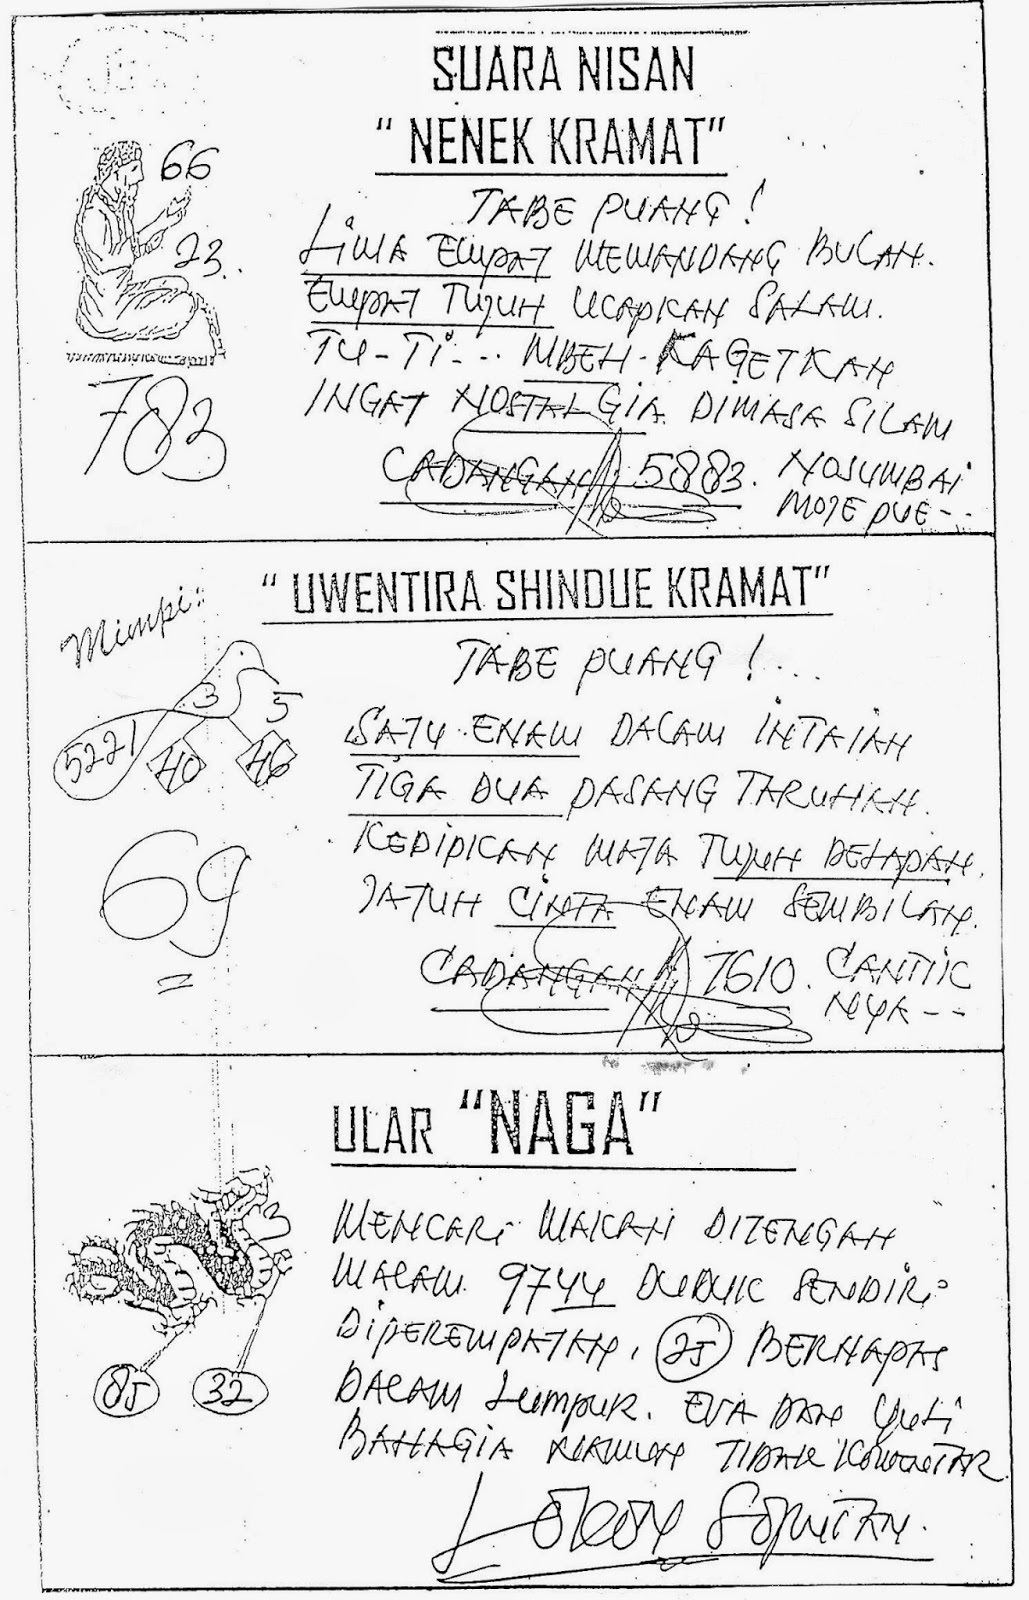 SUARA NISAN
" NENEK KRAMAT"
66
23..
783
TABE PUANG !
LIMA EMPAT MEMANDANG BULAN.
EMPAT TUJUH UCAPKAN SALAM.
TU-TI... MBEH-KAGETKAN
INGAT NOSTALGIA DIMASA SILAM
CADANGAN 5883. NOSUMBAI
MOJE PUE--
" UWENTIRA SHINDUE KRAMAT"
Mimpi:
3
5
5221
40
46
69
TABE PUANG !...
SATU ENAM DALAM INTAIAN
TIGA DUA PASANG TARUHAN.
KEDIPKAN MATA TUJUH DELAPAN.
JATUH CINTA ENAM SEMBILAN.
CADANGAN 7610. CANTIK
NYA--
ULAR "NAGA"
85
32
MENCARI MAKAN DITENGAH
MALAM. 9744 DUDUK SENDIRI
DIPEREMPATAN. 25 BERNAPAS
DALAM LUMPUR. EVA DAN YULI
BAHAGIA NAMUN TIDAK KOMENTAR